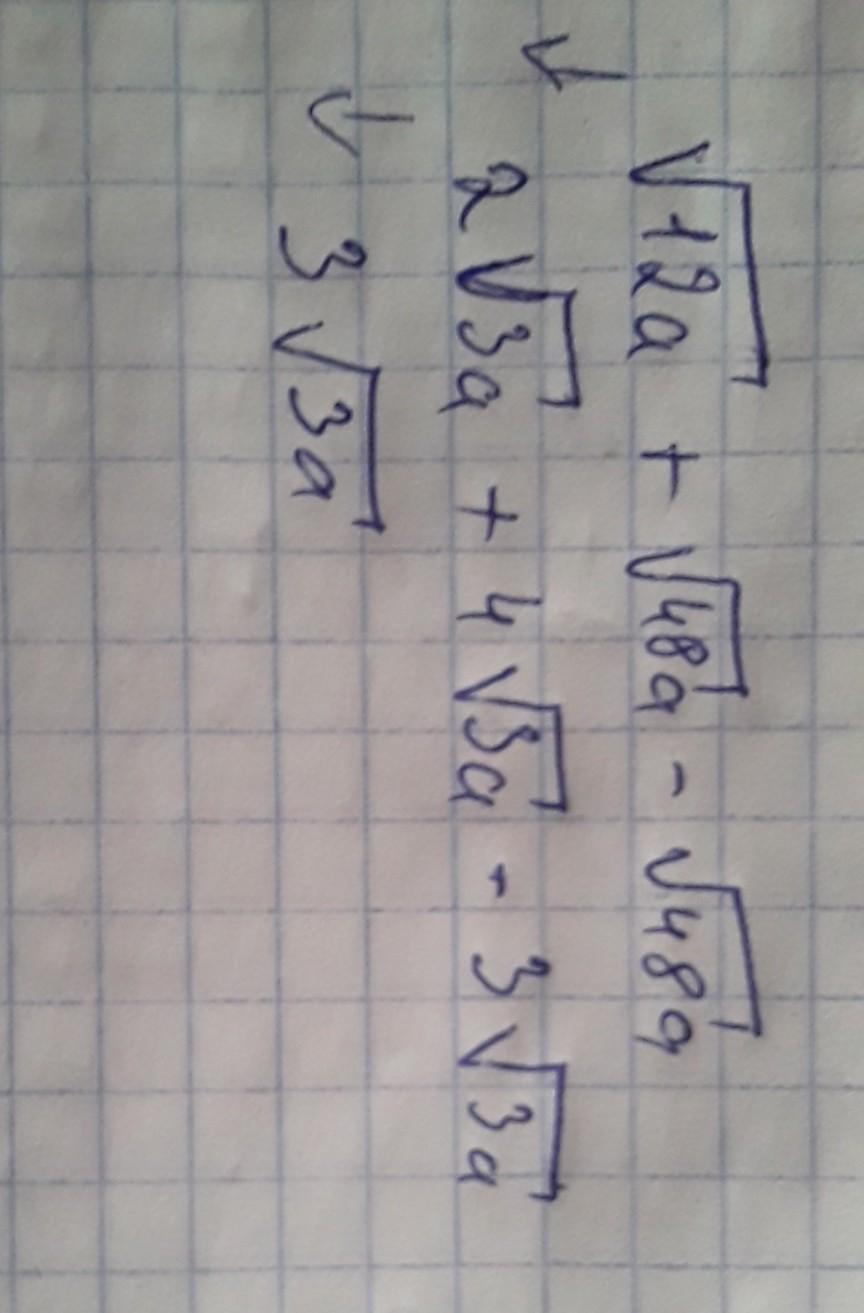 √12a + √48a - √48a
↓ 2√3a + 4√3a - 3√3a
↓ 3√3a